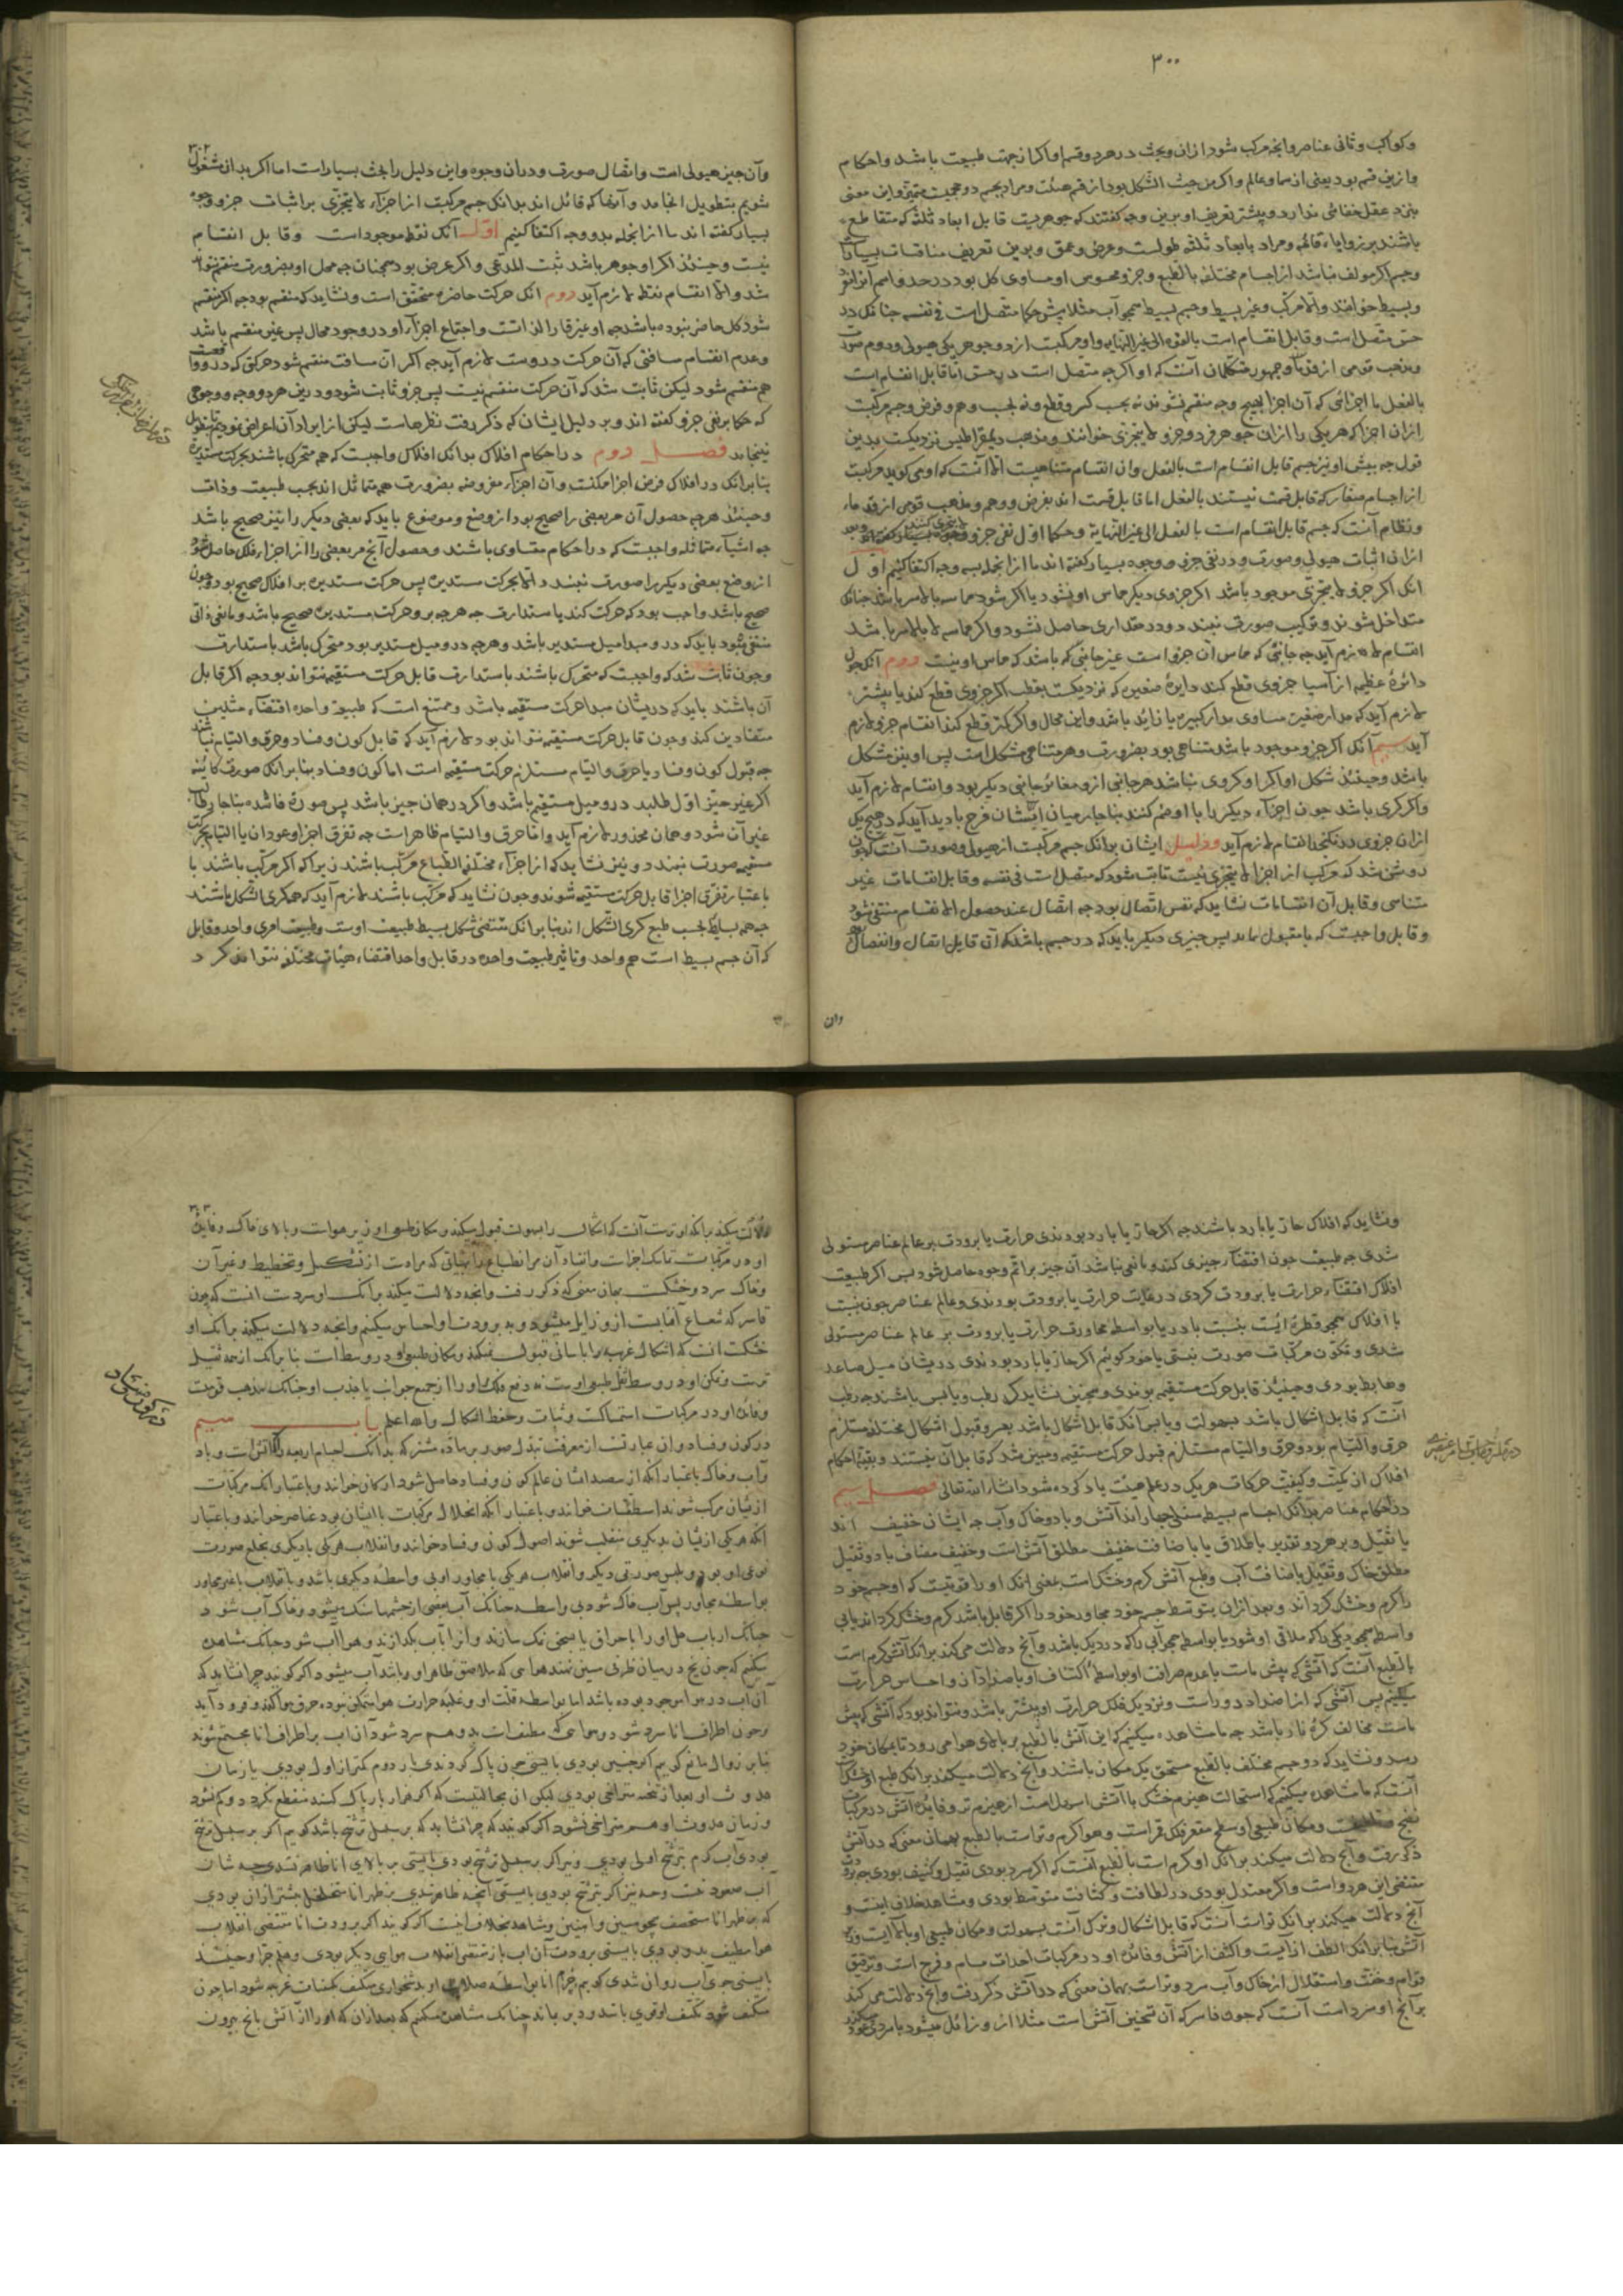 ۳۰۰
و کواکب و ثانی عناصر وانچه مرکب شود ازان وبحث در هر دو قسم اوکر از جهت طبیعت باشد واحکام
وازین قسم بود یعنی از سما وعالم واکر من حیث الشکل بود از قسم هیئت ومراد بجسم
نزد عقل خفائی ندارد وپیشتر تعریف او برین وجه کفتند که جوهریست قابل ابعاد ثلثه که متقاطع
باشند بر زوایاء قائمه ومراد بابعاد ثلثه طولست وعرض وعمق وبرین تعریف مناقشات بسیار
وجسم اکر مولف نباشد از اجسام مختلفه بالطبع وجزو محسوس او مساوی کل بود در حد واسم آنرا
وبسیط خوانند والا مرکب وغیر بسیط وجسم بسیط همچو آب مثلا پیش حکما متصل است فی نفسه چنانکه در
حس متصل است وقابل انقسام است بالقوه الی غیر النهایه واو مرکبست از دو جوهر یکی هیولی ودوم صورت
ومذهب قومی از قدما وجمهور متکلمان آنست که او اکرچه متصل است در حس اما قابل انقسام است
بالفعل با اجزائی که آن اجزا بهیچ وجه منقسم نشوند نه بحسب کسر وقطع ونه بحسب وهم وفرض وجسم مرکبست
ازان اجزا که هر یکی را ازان جوهر فرد وجزو لا یتجزی خوانند ومذهب دیمقراطیس نزدیکست بدین
قول چه پیش او نیز جسم قابل انقسام است بالفعل وان انقسام متناهیست الا آنست که او می کوید مرکبست
از اجسام صغار که قابل قسمت نیستند بالفعل اما قابل قسمت اند بفرض ووهم ومذهب قومی از قدماء
ونظام آنست که جسم قابل انقسام است بالفعل الی غیر النهایة وحکما اول نفی جزو
ازان اثبات هیولی وصورت ودر نفی جزو وجوه بسیار کفته اند ما از انجمله بسه وجه اکتفا کنیم اول
انک اکر جزو لا یتجزی موجود باشد اکر جزوی دیکر مماس او بشود یا
متداخل شوند وترکیب صورت نبندد ودر مقداری حاصل نشود واکر مماسه لا بالاسر باشد
انقسام لازم آید چه جانبی که مماس آن جزو است غیر جانبی که باشد که مماس او نیست دوم آنک چون
دائرۀ عظیمه از آسیا جزوی قطع کند دایرۀ صغیره که نزدیکست بقطب اکر جزوی قطع کند یا بیشتر
لازم آید که مدار صغیر مساوی مدار کبیر یا زاید باشد واین محال واکر کمتر قطع کند انقسام جزو لازم
آید سیم آنک اکر جزو موجود باشد متناهی بود بضرورت وهر متناهی مشکل است پس او نیز مشکل
باشد وحینئذ شکل او اکر کروی نباشد هر جانبی ازو مغائر جانبی دیکر بود وانقسام لازم آید
واکر کری باشد چون اجزاء دیکر را با او ضم کنند بناچار میان ایشان فرج با دید آید که در هیچ یک
ازان جزوی در نکنجد انقسام لازم آید ودلیل ایشان برانک جسم مرکبست از هیولی وصورت آنست که چون
روشن شد که مرکب از اجزا لا یتجزی نیست ثابت شود که متصل است فی نفسه وقابل انقسامات غیر
متناهی وقابل آن انقسامات نشاید که نفس اتصال بود چه اتصال عند حصول الانقسام منتفی شود
وقابل واجبست که با مقبول بماند پس چیزی دیکر باید که در جسم باشد که آن قابل اتصال وانفصال
وان
۳۰۲
وآن چیز هیولی است واتصال صورت ودران وجوه واین دلیل را بحث بسیار است اما اکر بدان مشغول
شویم بتطویل انجامد وآنها که قائل اند بدانک جسم مرکبست از اجزاء لا یتجزی بر اثبات جزو وجوه
بسیار کفته اند ما از انجمله بدو وجه اکتفا کنیم اول آنک نقطه موجود است وقابل انقسام
نیست وحینئذ اکر او جوهر باشد ثبت المدعی واکر عرض بود همچنان چه محل او بضرورت منقسم نتواند
شد والا انقسام نقطه لازم آید دوم انک حرکت حاضره متحقق است ونشاید که منقسم بود چه اکر منقسم
شود کل حاضر نبوده باشد چه او غیر قار الذاتست واجتماع اجزاء او در وجود محال پس غیر منقسم باشد
وعدم انقسام مسافتی که آن حرکت دروست لازم آید چه اکر ان مسافت منقسم شود حرکتی که درو واقعست
هم منقسم شود لیکن ثابت شد که آن حرکت منقسم نیست پس جزو ثابت شود ودرین هر دو وجه ووجوهی
که حکما بر نفی جزو کفته اند وبر دلیل ایشان که ذکر رفت نظرهاست لیکن از ایراد آن اعراض نمودیم تا بتطویل
نینجامد فصل دوم در احکام افلاک بدانک افلاک واجبست که همه متحرک باشند بحرکت مستدیر
بنا برانک در افلاک فرض اجزا ممکنست وآن اجزاء مفروضه بضرورت همه متماثل اند بحسب طبیعت وذات
وحینئذ هرچه حصول آن مر بعضی را صحیح بود از وضع وموضوع باید که بعضی دیکر را نیز صحیح باشد
چه اشیاء متماثله واجبست که در احکام متساوی باشند وحصول آنچ مر بعضی را از اجزاء فلک حاصل شود
از وضع بعضی دیکر را صورت نبندد الا بحرکت مستدیره پس حرکت مستدیره بر افلاک صحیح بود وچون
صحیح باشد واجب بود که حرکت کند باستدارت چه هرچه برو حرکت مستدیره صحیح باشد ومانعی ذاتی
منتفی شود باید که درو مبدا میل مستدیر باشد وهرچه درو میل مستدیر بود متحرک باشد باستدارت
وچون ثابت شد که واجبست که متحرک باشند باستدارت قابل حرکت مستقیمه نتواند بود چه اکر قابل
آن باشند باید که دریشان مبدا حرکت مستقیمه باشد وممتنع است که طبیعة واحده اقتضاء مثلین
متضادین کند وچون قابل حرکت مستقیمه نتواند بود لازم آید که قابل کون وفساد وخرق والتیام نباشند
چه قبول کون وفساد یا خرق والتیام مستلزم حرکت مستقیمه است اما کون وفساد بنا برانک صورت کاینه
اکر غیر حیز اول طلبد درو میل مستقیم باشد واکر در همان حیز باشد پس صورة فاسده بناچار طالب
غیر آن شود وهمان محذور لازم آید واما خرق والتیام ظاهر است چه تفرق اجزا وعود ان یا التیام بحرکت
مستقیمه صورت نبندد ونیز نشاید که از اجزاء مختلفة الطباع مرکب باشند زیرا که اکر مرکب باشند یا
باعتبار تفرق اجزا قابل حرکت مستقیمه شوند وچون نشاید که مرکب باشند لازم آید که همه کری الشکل باشند
چه همه بسایط بحسب طبع کری الشکل اند بنا برانک مقتضی شکل بسیط طبیعت اوست وطبیعت امری واحد وقابل
که آن جسم بسیط است هم واحد وتاثیر طبیعت واحده در قابل واحد اقتضاء هیئات مختلفه نتواند کرد
ونشاید که افلاک حار یا بارد باشند چه اکر حار یا بارد بودندی حرارت یا برودت بر عالم عناصر مستولی
شدی چه طبیعت چون اقتضاء چیزی کند ومانعی نباشد آن چیز بر اتم وجوه حاصل شود پس اکر طبیعت
افلاک اقتضاء حرارت یا برودت کردی در غایت حرارت یا برودت بودندی وعالم عناصر چون نسبت
با افلاک همچو قطرۀ ایست بنسبت با دریا بواسطه مجاورت حرارت یا برودت بر عالم عناصر مستولی
شدی وتکون مرکبات صورت نبستی یا خود کوئیم اکر حار یا بارد بودندی دریشان میل صاعد
وهابط بودی وحینئذ قابل حرکت مستقیمه بودندی وهمچنین نشاید که رطب ویابس باشند چه رطب
آنست که قابل اشکال باشد بسهولت ویابس آنک قابل اشکال باشد بعسر وقبول اشکال مختلفه مستلزم
خرق والتیام بود وخرق والتیام مستلزم قبول حرکت مستقیمه ومبین شد که قابل آن نیستند وبقیۀ احکام
افلاک از کمیت وکیفیت حرکات هر یکی در علم هیئت یاد کرده شود انشاء الله تعالی فصل سیم
در احکام عناصر بدانک اجسام بسیط سفلی چهار اند آتش وباد وخاک وآب چه ایشان خفیف اند
یا ثقیل وبر هر دو تقدیر باطلاق یا باضافت خفیف مطلق آتش است وخفیف مضاف باد وثقیل
مطلق خاک وثقیل باضافت آب وطبع آتش کرم وخشک است بمعنی انک او را قوتیست که او جسم خود
را کرم وخشک کرداند وبعد ازان بتوسط جسم خود مجاور خود را اکر قابل باشد کرم وخشک کرداند
بالطبع آنست که آتشی که پیش ماست با عدم صرافت او وبواسطۀ اکتناف او باضداد آن واحساس حرارت
میکنیم پس آتشی که از اضداد دور است ونزدیک فلک حرارت او بیشتر باشد ونتواند بود که آتشی که پیش
ماست مخالف کرۀ نار باشد چه ما مشاهده میکنیم که این آتش بالطبع بر بالای هوا می رود تا بمکان خود
رسد ونشاید که دو جسم مختلف بالطبع مستحق یک مکان باشند وآنچ دلالت میکند برانک طبع او خشک
آنست که ما مشاهده میکنیم که استحالت هیزم خشک با آتش اسهل است از هیزم تر وفایدۀ آتش در مرکبات
نضج ومکان طبیعی او سطح مقعر فلک قمر است وهوا کرم وتر است بالطبع بهمان معنی که در آتش
ذکر رفت وآنچ دلالت میکند برانک او کرم است بالطبع آنست که اکر سرد بودی ثقیل وکثیف بودی چه برودت
مقتضی این هر دو است واکر معتدل بودی در لطافت وکثافت متوسط بودی ومشاهد خلاف اینست و
آنچ دلالت میکند برانک تر است آنست که قابل اشکال وترک آنست بسهولت ومکان طبیعی او بالاء آبست وزیر
آتش بنا برانک الطف از آبست واکثف از آتش وفائدۀ او در مرکبات احداث مسام وفرج است وترقیق
قوام وخفت واستقلال از خاک وآب سرد وتر است بهمان معنی که در آتش ذکر رفت وآنچ دلالت می کند
بر آنچ او سرد است آنست که چون قاسر که آن تسخین آتش است مثلا ازو زائل میشود با سردی خود
۳۰۳
دلالت میکند برانک او ترست آنست که اشکال را بسهولت قبول میکند ومکان طبیعی او زیر هواست وبالای خاک وفایدۀ
او در مرکبات تماسک اجزاست وانقیاد آن مر انطباع را بهیأتی که مرادست از تشکیل وتخطیط وغیر آن
وخاک سرد وخشکست بهمان معنی که ذکر رفت وانچه دلالت میکند برانک او سردست انست که چون
قاسر که شعاع آفتابست ازو زایل میشود وبه برودت او احساس میکنیم وانچه دلالت میکند برانک او
خشکست انست که اشکال غریبه را باسانی قبول نمیکند ومکان طبیعی او در وسط است بنا برانک از همه ثقیل
ترست وتمکن او در وسط بثقل طبیعی اوست نه دفع فلک او را از جمیع جوانب یا جذب او چنانک مذهب قومیست
وفائدۀ او در مرکبات استمساکست وثبات وحفظ اشکال والله اعلم باب سیم
در کون وفساد وان عبارتست از معرفت تبدل صور بر مادۀ مشترکه بدانک اجسام اربعه که آتش است وباد
وآب وخاک باعتبار آنکه از نضد ایشان عالم کون وفساد حاصل شود ارکان خوانند وباعتبار انک مرکبات
ازیشان مرکب شوند اسطقسات خوانند وباعتبار آنکه انحلال مرکبات با ایشان بود عناصر خوانند وباعتبار
آنکه هر یکی ازیشان بدیکری منقلب شوند اصول کون وفساد خوانند وانقلاب هر یکی بدیکری بخلع صورت
نوعی او بود وبلبس صورتی دیکر وانقلاب هر یکی با مجاور او بی واسطۀ دیکری باشد وبانقلاب با غیر مجاور
بواسطۀ مجاور پس آب خاک شود بی واسطه چنانک آب بعضی از چشمها سنک میشود وخاک آب شود
چنانک ارباب حیل او را باحراق یا بسحق نمک سازند وانرا باب بکدازند وهوا آب شود چنانک مشاهده
میکنیم که چون یخ در میان ظرفی سیمین نهند هوایی که ملاصق ظاهر او باشد آب میشود اکر کویند چرا نشاید که
آن آب در هوا موجود بوده باشد اما بواسطۀ قلت او وغلبۀ حرارت هوا متمکن نبوده خرق هوا کند وفرود آید
وچون اطراف انا سرد شود وهوایی که مطیف است بدو هم سرد شود آن اب بر اطراف انا مجتمع شوند
بنا بر زوال مانع کوییم اکر چنین بودی بایستی چون پاک کردندی بار دوم کمتر از اول بودی یا زمان
حدوث او بعد از تنحیه متراخی بودی لیکن ان بمثابتیست که اکر هزار بار پاک کنند منقطع نکردد وکم نشود
وزمان حدوث او هم متراخی نشود اکر کویند که چرا نشاید که بر سبیل ترشح باشد کوییم اکر بر سبیل ترشح
بودی آب کرم بترشح اولی بودی ونیز اکر بر سبیل ترشح بودی بایستی بر بالای انا ظاهر نشدی چه شان
آب صعود نیست ونیز اکر بترشح بودی بایستی آنچه ظاهر شدی بر ظهر انا متخلخل بیشتر ازان بودی
که بر ظهر انا مستحصف چو مسین وابکین ومشاهد بخلاف اینست اکر کویند اکر برودت انا مقتضی انقلاب
هوا مطیف بدو بودی بایستی برودت آن اب باز مقتضی انقلاب هوایی دیکر بودی وهلم جرا وحینئذ
بایستی جوی آب روان شدی کوییم جرم انا بواسطۀ صلابت او بدشخواری متکیف بکیفیات غریبه شود اما چون
متکیف شود تکیف او قوی باشد ودیر بماند چنانک مشاهده میکنیم که بعد ازان که او را از آتش یا یخ بیرون